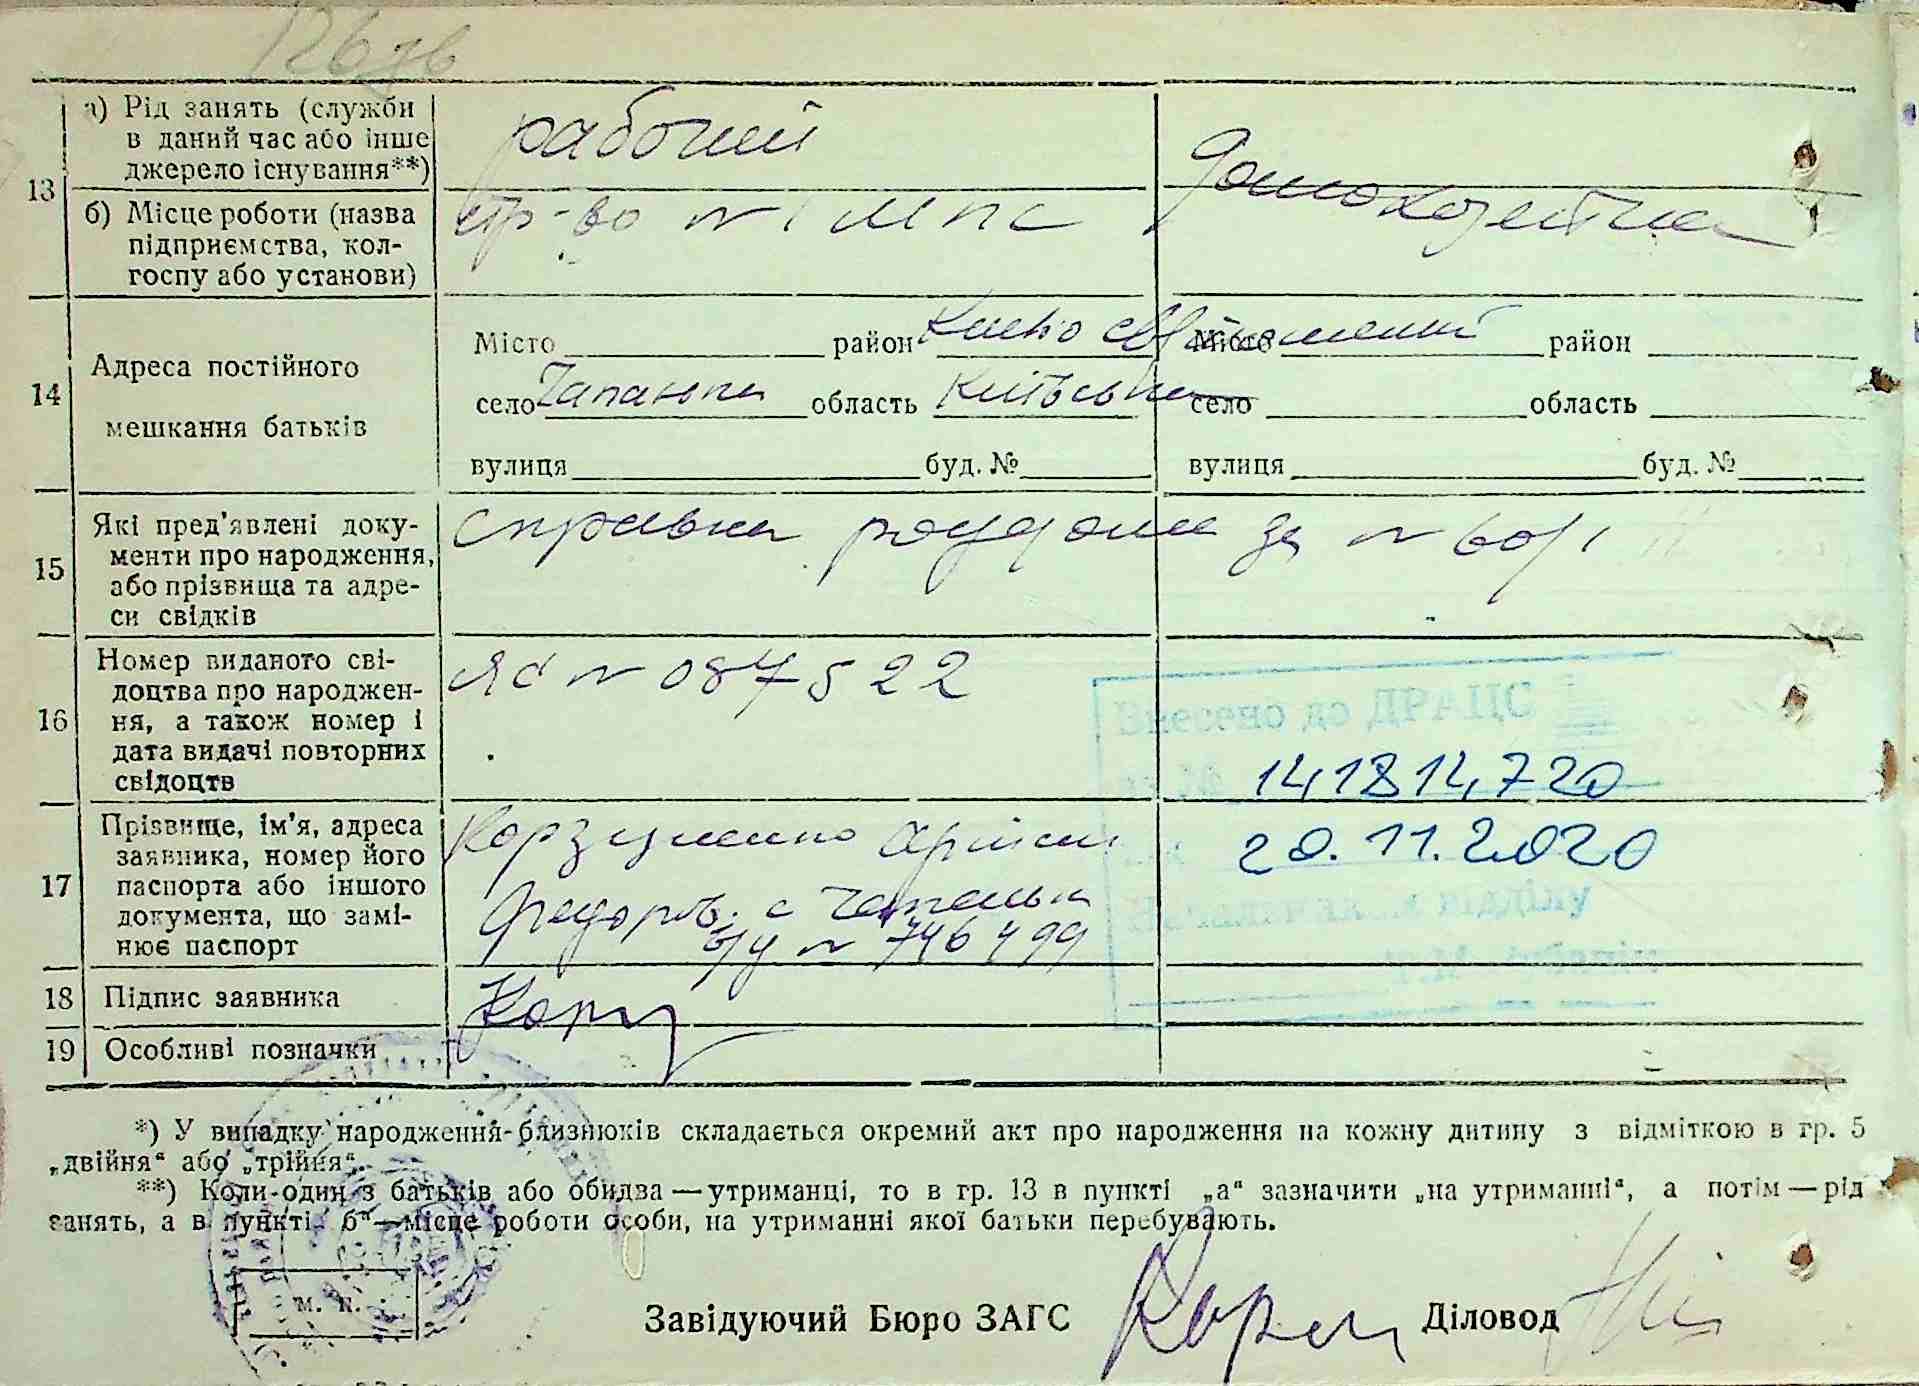 13
а) Рід занять (служби
в даний час або інше
джерело існування**)
рабочий
домохозяйка
б) Місце роботи (назва
підприємства, кол-
госпу або установи)
стр-во № 1 МПС
14
Адреса постійного
мешкання батьків
Місто район Києво Святошинский
село Чапаєвка область Київська
вулиця буд. №
Місто район
село область
вулиця буд. №
15
Які пред'явлені доку-
менти про народження,
або прізвища та адре-
си свідків
справка роддома за №
16
Номер виданого сві-
доцтва про народжен-
ня, а також номер і
дата видачі повторних
свідоцтв
ЯС № 087522
Внесено до ДРАЦС
за № 141814720
20.11.2020
Начальник відділу
17
Прізвище, ім'я, адреса
заявника, номер його
паспорта або іншого
документа, що замі-
нює паспорт
Федоров. с
№ 746499
18
Підпис заявника
19
Особливі позначки
*) У випадку народження близнюків складається окремий акт про народження на кожну дитину з відміткою в гр. 5
„двійня“ або „трійня“.
**) Коли один з батьків або обидва — утриманці, то в гр. 13 в пункті „а“ зазначити „на утриманні“, а потім — рід
занять, а в пункті „б“ — місце роботи особи, на утриманні якої батьки перебувають.
м. п.
Завідуючий Бюро ЗАГС
Діловод